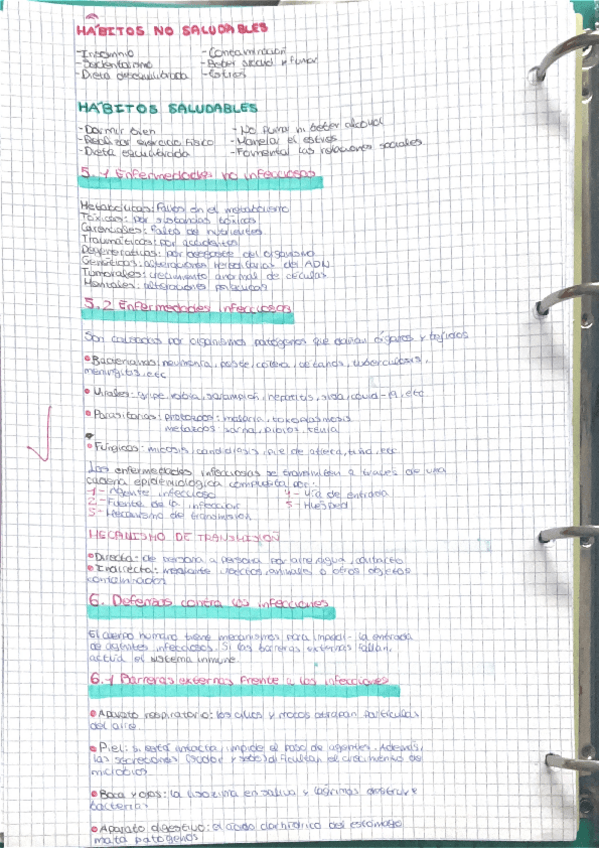 HÁBITOS NO SALUDABLES
-Insomnio -Contaminación
-Sedentarismo -Beber alcohol y fumar
-Dieta desequilibrada -Estrés
HÁBITOS SALUDABLES
-Dormir bien -No fumar ni beber alcohol
-Realizar ejercicio físico -Manejar el estrés
-Dieta equilibrada -Fomentar las relaciones sociales
5.1 Enfermedades no infecciosas
Metabólicas: Fallos en el metabolismo
Tóxicas: por sustancias tóxicas
Carenciales: falta de nutrientes
Traumáticas: por accidentes
Degenerativas: por desgaste del organismo
Genéticas: alteraciones hereditarias del ADN
Tumorales: crecimiento anormal de células
Mentales: alteraciones psíquicas
5.2 Enfermedades infecciosas
Son causadas por organismos patógenos que dañan órganos y tejidos
Bacterianas: neumonía, peste, cólera, tétanos, tuberculosis,
meningitis, etc
Virales: gripe, rabia, sarampión, hepatitis, sida, covid-19, etc
Parasitarias: protozoos: malaria, toxoplasmosis
metazoos: sarna, piojos, tenia
Fúngicas: micosis, candidiasis, pie de atleta, tiña, etc
Las enfermedades infecciosas se transmiten a través de una
cadena epidemiológica compuesta por:
1- Agente infeccioso 4- Vía de entrada
2- Fuente de la infección 5- Huésped
3- Mecanismo de transmisión
MECANISMO DE TRANSMISIÓN
Directa: de persona a persona por aire, agua, contacto
Indirecta: mediante insectos, animales o otros objetos
contaminados
6. Defensas contra las infecciones
El cuerpo humano tiene mecanismos para impedir la entrada
de agentes infecciosos. Si las barreras externas fallan,
actúa el sistema inmune
6.1 Barreras externas frente a las infecciones
Aparato respiratorio: los cilios y mocos atrapan partículas
del aire.
Piel: si está intacta, impide el paso de agentes. Además,
las secreciones (sudor y sebo) dificultan el crecimiento de
microbios
Boca y ojos: la lisozima en saliva y lágrimas destruye
bacterias
Aparato digestivo: el ácido clorhídrico del estómago
mata patógenos